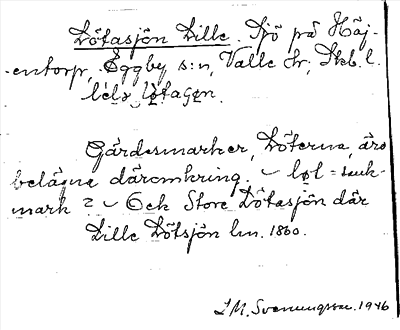 Lötasjön Lille. Sjö på Häj-
entorp, Eggby s:n, Valle hr, Skb. l.
lɩlɘ løtaʃøn.
Gärdesmarker, Löterna, äro
belägna däromkring. – løt = sank-
mark? – Och Store Lötasjön där
Lille Lötsjön lm. 1860.
L M. Svenungsson. 1946